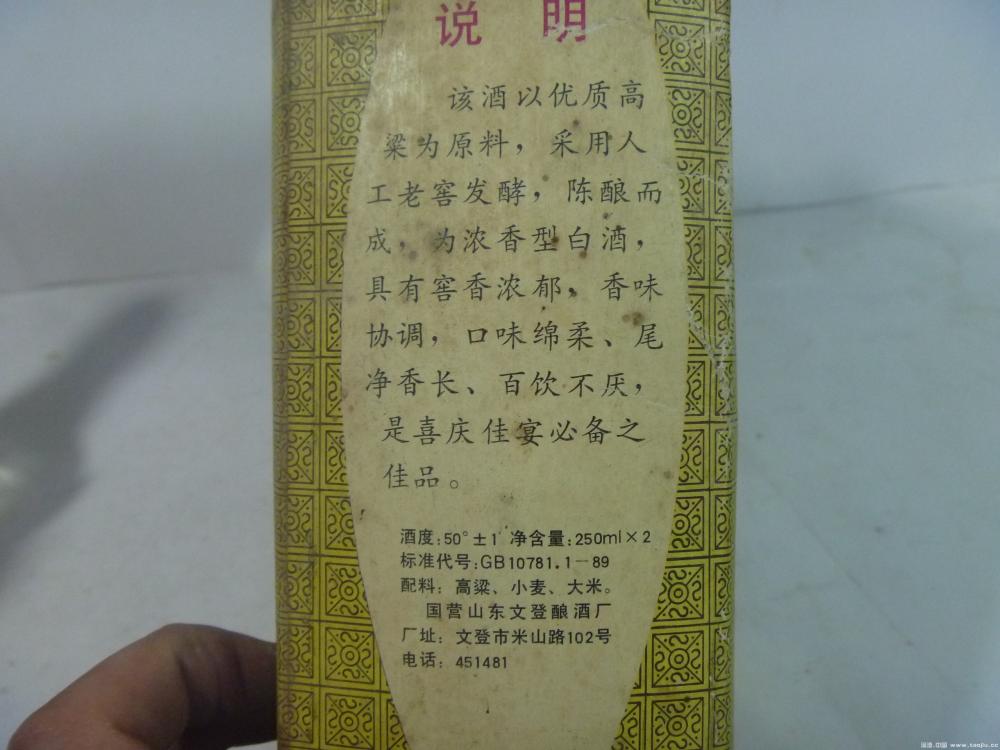 说 明
该酒以优质高
粱为原料，采用人
工老窖发酵，陈酿而
成，为浓香型白酒，
具有窖香浓郁，香味
协调，口味绵柔、尾
净香长、百饮不厌，
是喜庆佳宴必备之
佳品。
酒度:50°±1 净含量:250ml×2
标准代号:GB10781.1-89
配料：高粱、小麦、大米。
国营山东文登酿酒厂
厂址：文登市米山路102号
电话：451481